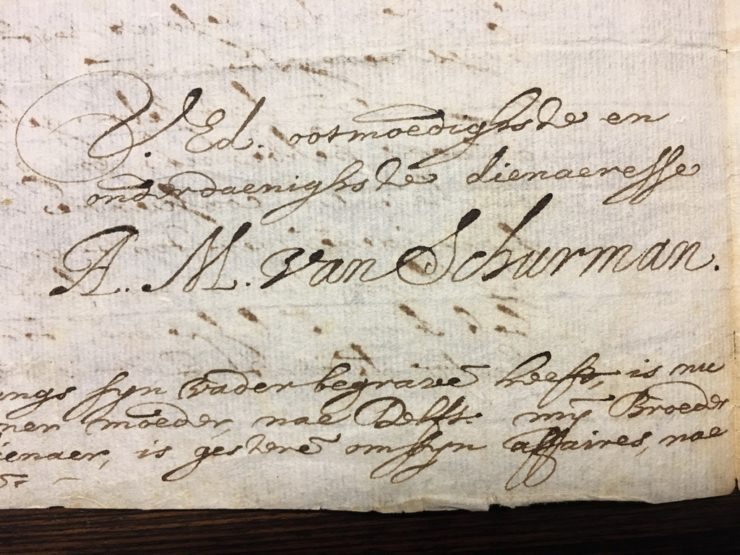 V. Ed. ootmoedighste en
onderdaenighste dienaeresse
A. M. van Schurman.
ungs syn vader begravē heeft, is nu
nen moeder, nae Delft. mÿ Broeder
ienaer, is gesterē om syn affaires, nae